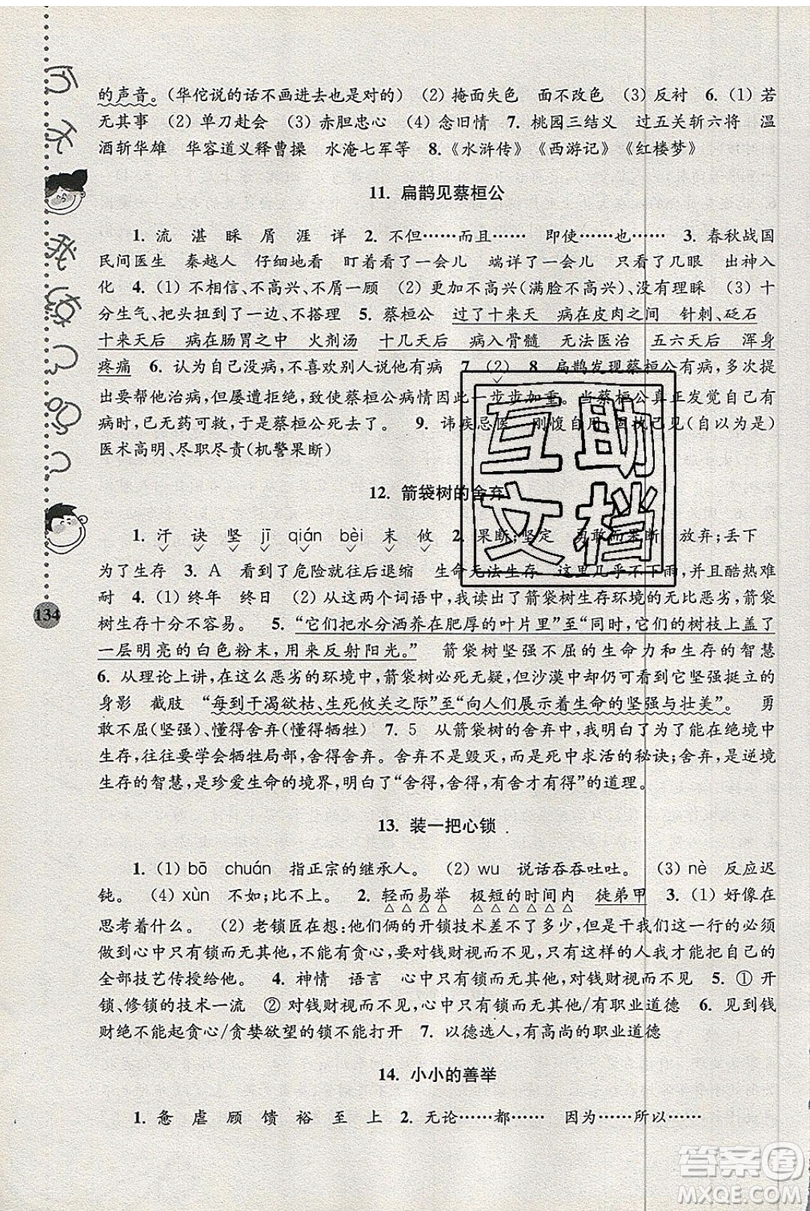 的声音。(华佗说的话不画进去也是对的) (2) 掩面失色 面不改色 (3) 反衬 6. (1) 若
无其事 (2) 单刀赴会 (3) 赤胆忠心 (4) 念旧情 7. 桃园三结义 过五关斩六将 温
酒斩华雄 华容道义释曹操 水淹七军等 8.《水浒传》《西游记》《红楼梦》
11. 扁鹊见蔡桓公
1. 流 湛 睬 屑 涯 详 2. 不但……而且…… 即使……也…… 3. 春秋战国
民间医生 秦越人 仔细地看 盯着看了一会儿 端详了一会儿 只看了几眼 出神入
化 4. (1) 不相信、不高兴、不屑一顾 (2) 不高兴(满脸不高兴)、没有理睬 (3) 十
分生气、把头扭到了一边、不搭理 5. 蔡桓公 过了十来天 病在皮肉之间 针刺、砭石
十来天后 病在肠胃之中 火剂汤 十几天后 病入骨髓 无法医治 五六天后 浑身
疼痛 6. 认为自己没病,不喜欢别人说他有病 7. (2) 8. 扁鹊发现蔡桓公有病,
提出要帮他治病,但屡遭拒绝,致使蔡桓公病情一步步加重。当蔡桓公真正发觉自己有
病时,已无药可救,于是蔡桓公死去了。 9. 讳疾忌医 刚愎自用 固执己见(自以为是)
医术高明、尽职尽责(机警果断)
12. 箭袋树的舍弃
1. 汗 诀 坚 jī qián bèi 末 攸 2. 果断;坚定 勇敢而果断 放弃;丢下
为了生存 3. A 看到了危险就往后退缩 生命无法生存 这里几乎无雨,干燥酷热难
耐 4. (1) 终年 终日 (2) 从这两个词语中,我读出了箭袋树生存环境的无比恶劣,箭袋
树生存十分不容易。 5. “它们把水分涵养在肥厚的叶片里”至“同时,它们的树枝上盖了
一层明亮的白色粉末,用来反射阳光。” 箭袋树坚强不屈的生命力和无与伦比的美丽
6. 从理论上讲,在这么恶劣的环境中,箭袋树必死无疑,但沙漠中仍有箭袋树坚强挺立的
身影 截肢 “每到干渴欲枯、生死攸关之际”至“向人们展示着生命的坚强与壮美”。 勇
敢不屈(坚强)、懂得舍弃(懂得牺牲) 7. 5 从箭袋树的舍弃中,我知道了为了能在绝境中
生存,往往要学会牺牲局部,学会舍弃。舍弃不是毁灭,而是死中求活的秘诀;舍弃,是逆境
生存的智慧,是珍爱生命的境界,我明白了“舍得,舍得,舍去才有得”的道理。
13. 装一把心锁
1. (1) bō chuán 指正宗的继承人。 (2) wu 说话吞吞吐吐。 (3) nè 反应迟
钝。 (4) xùn 不如;比不上。 2. 轻而易举 极短的时间内 徒弟甲 3. (1) 好像在
思考着什么。 (2) 老锁匠在想:他们俩的开锁技术差不了多少,但是干我们这一行的必须
做到心中只有锁而无其他,不能有贪心,要对钱财视而不见,只有这样的人才能把自己的
全部技艺传授给他。 4. 神情 语言 心中只有锁而无其他,对钱财视而不见 5. ① 开
锁、修锁的技术一流 ② 对钱财视而不见,心中只有锁而无其他/有职业道德 6. 见到钱
财绝不能起贪心/贪婪欲望的锁不能打开 7. 以德选人,有高尚的职业道德
14. 小小的善举
1. 惫 虐 顾 馈 裕 至 上 2. 无论……都…… 因为……所以……
134
互助
文档
答案圈
MXQE.COM